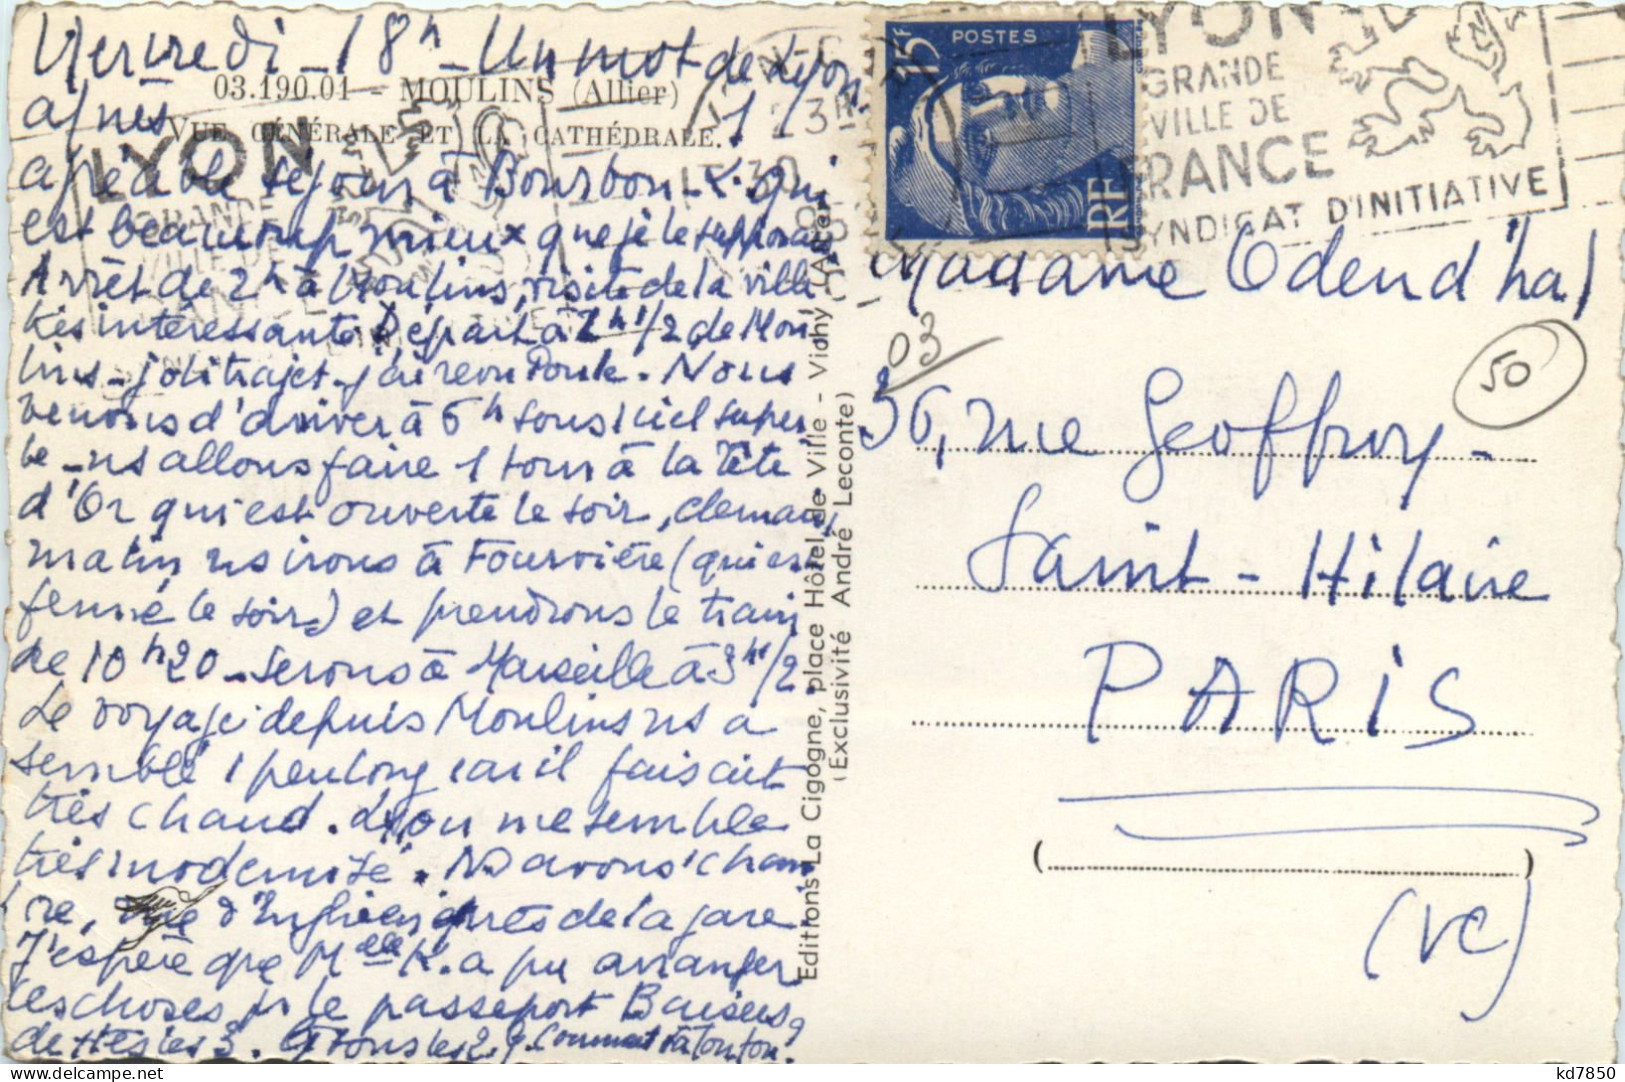 Mercredi - 18h - Un mot de Lyon
03.190.01 - MOULINS (Allier)
VUE GÉNÉRALE ET LA CATHÉDRALE.
après 1
agréable séjour à Bourbon-L. qui
est beaucoup mieux que je le supposais
Arrêt de 2h à Moulins, visite de la ville
très intéressante. Départ à 2h1/2 de Mou-
lins - joli trajet - j'ai revu Nous
venons d'arriver à 6h sous 1 ciel super
be - ns allons faire 1 tour à la Tête
d'Or qui est ouverte le soir, demain
matin ns irons à Fourvière (qui est
fermé le soir) et prendrons le train
de 10h20 - Serons à Marseille à 3h1/2.
Le voyage depuis Moulins ns a
semblé 1 peu long car il faisait
très chaud. Lyon me semble
très modernisé. Ns avons 1 cham
bre, rue d'Enghien près de la gare.
J'espère que Melle K. a pu arranger
les choses pr le passeport Baisers
de ttes les 3. à Tonton?
Editions La Cigogne, place Hôtel de Ville - Vichy (Allier)
(Exclusivité André Leconte)
15F POSTES
RF
LYON
GRANDE
VILLE DE
FRANCE
SYNDICAT D'INITIATIVE
LYON
GRANDE
VILLE DE
Madame Odend'hal
03
50
36, rue Geoffroy-
Saint-Hilaire
PARIS
(Ve)
kd7850